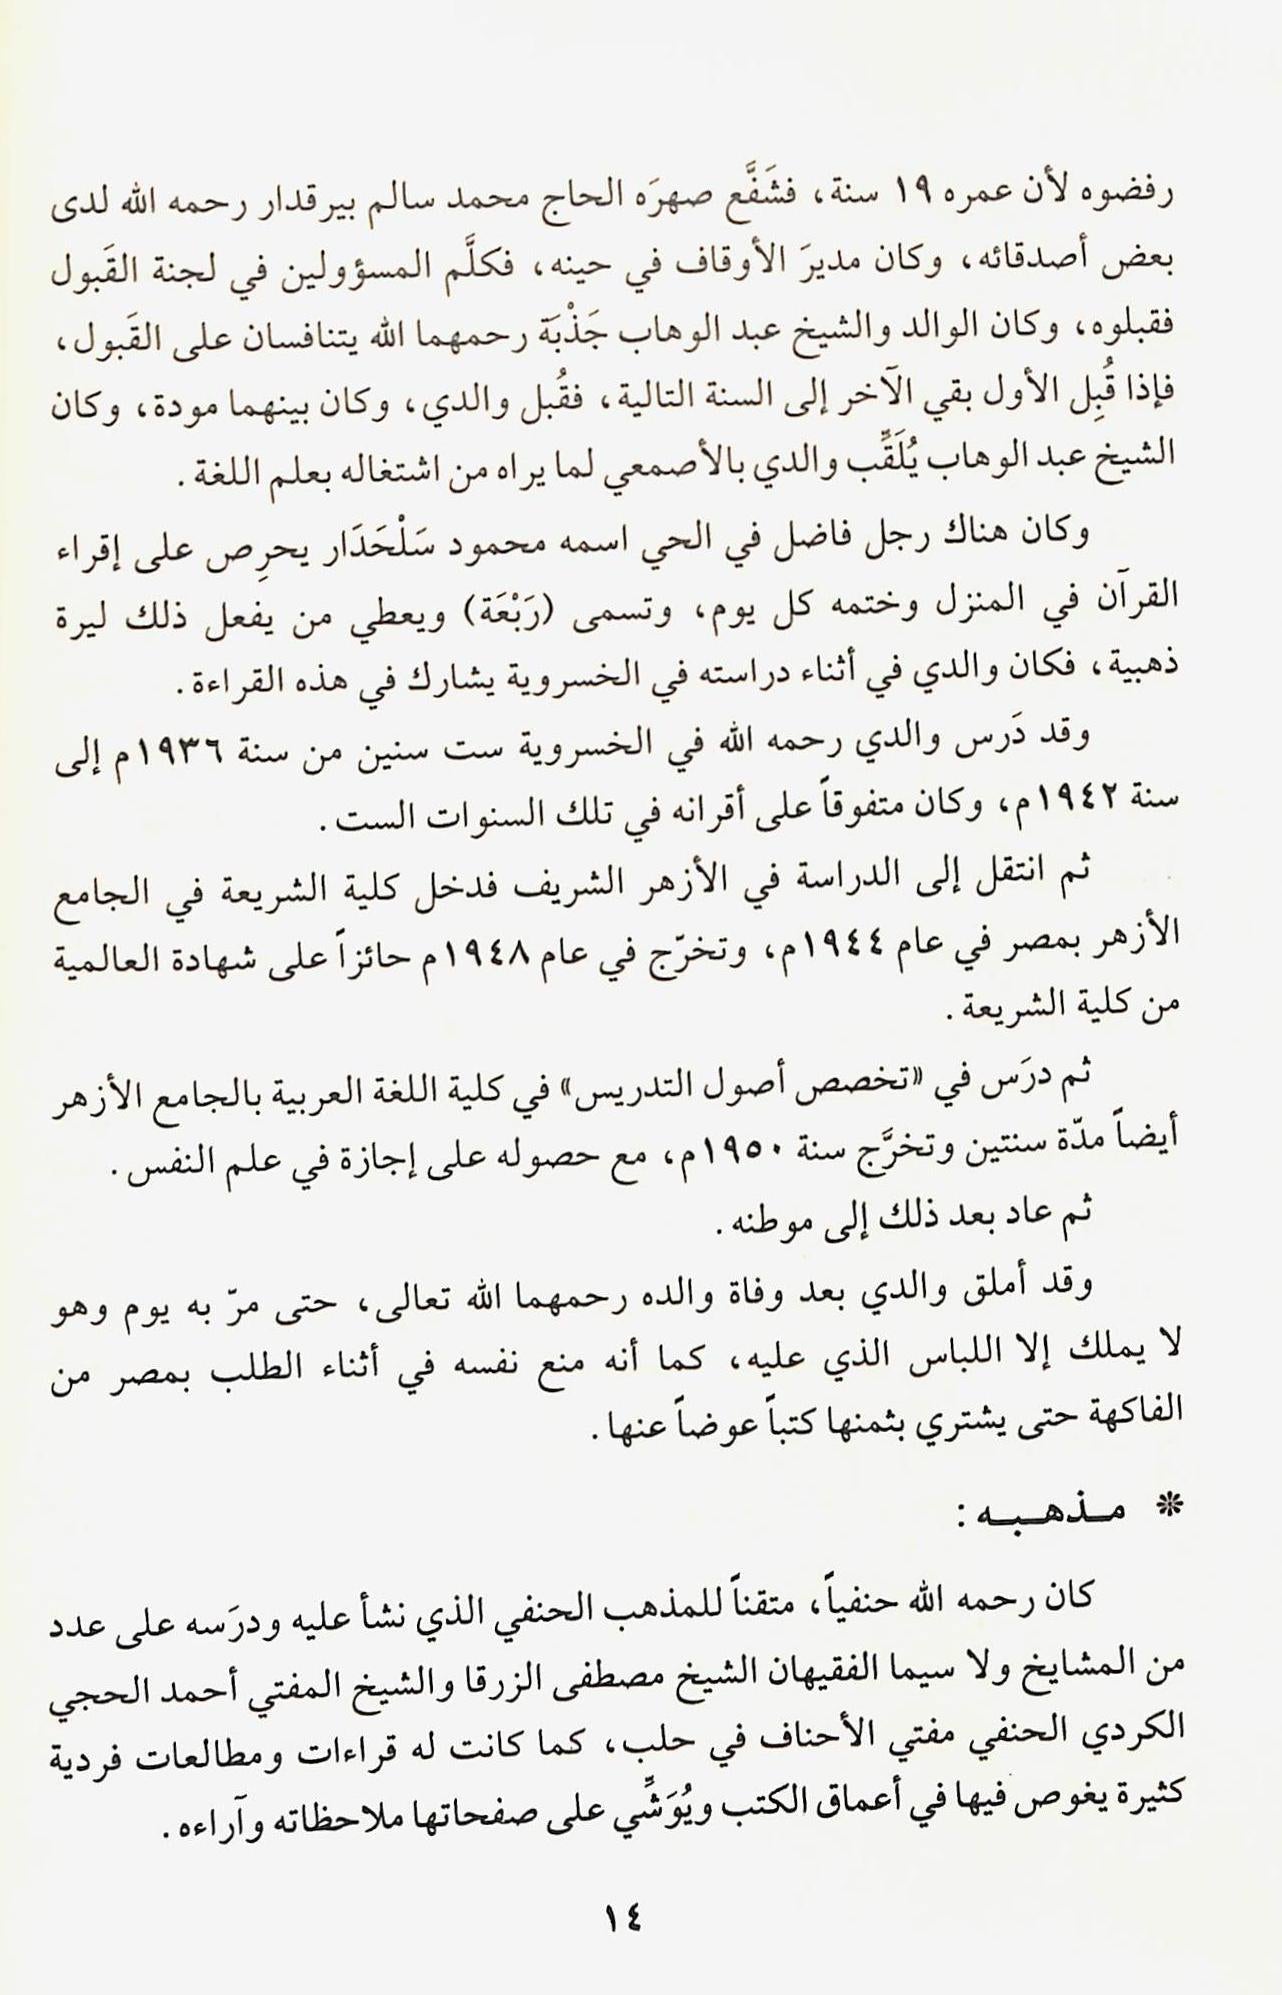 رفضوه لأن عمره ١٩ سنة، فشَفَّع صهرَه الحاج محمد سالم بيرقدار رحمه الله لدى
بعض أصدقائه، وكان مديرَ الأوقاف في حينه، فكلَّم المسؤولين في لجنة القَبول
فقبلوه، وكان الوالد والشيخ عبد الوهاب جَذْبَة رحمهما الله يتنافسان على القَبول،
فإذا قُبِل الأول بقي الآخر إلى السنة التالية، فقُبل والدي، وكان بينهما مودة، وكان
الشيخ عبد الوهاب يُلَقِّب والدي بالأصمعي لما يراه من اشتغاله بعلم اللغة.
وكان هناك رجل فاضل في الحي اسمه محمود سَلْحَدَار يحرِص على إقراء
القرآن في المنزل وختمه كل يوم، وتسمى (رَبْعَة) ويعطي من يفعل ذلك ليرة
ذهبية، فكان والدي في أثناء دراسته في الخسروية يشارك في هذه القراءة.
وقد دَرس والدي رحمه الله في الخسروية ست سنين من سنة ١٩٣٦م إلى
سنة ١٩٤٢م، وكان متفوقاً على أقرانه في تلك السنوات الست.
ثم انتقل إلى الدراسة في الأزهر الشريف فدخل كلية الشريعة في الجامع
الأزهر بمصر في عام ١٩٤٤م، وتخرّج في عام ١٩٤٨م حائزاً على شهادة العالمية
من كلية الشريعة.
ثم درَس في «تخصص أصول التدريس» في كلية اللغة العربية بالجامع الأزهر
أيضاً مدّة سنتين وتخرَّج سنة ١٩٥٠م، مع حصوله على إجازة في علم النفس.
ثم عاد بعد ذلك إلى موطنه.
وقد أملق والدي بعد وفاة والده رحمهما الله تعالى، حتى مرّ به يوم وهو
لا يملك إلا اللباس الذي عليه، كما أنه منع نفسه في أثناء الطلب بمصر من
الفاكهة حتى يشتري بثمنها كتباً عوضاً عنها.
* مـذهـبـه:
كان رحمه الله حنفياً، متقناً للمذهب الحنفي الذي نشأ عليه ودرَسه على عدد
من المشايخ ولا سيما الفقيهان الشيخ مصطفى الزرقا والشيخ المفتي أحمد الحجي
الكردي الحنفي مفتي الأحناف في حلب، كما كانت له قراءات ومطالعات فردية
كثيرة يغوص فيها في أعماق الكتب ويُوَشِّي على صفحاتها ملاحظاته وآراءه.
١٤